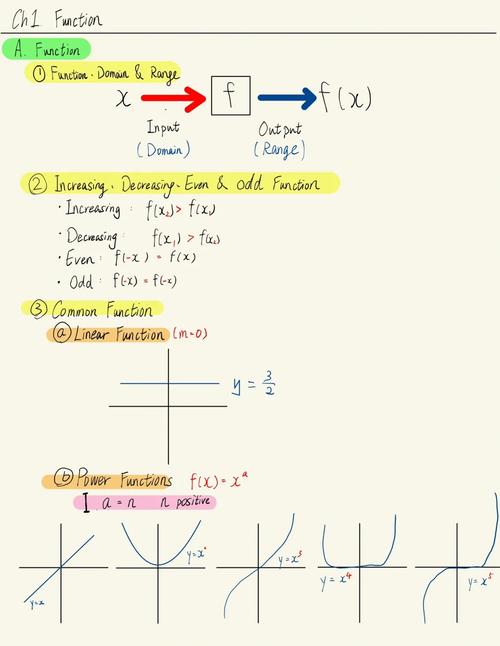 Ch1. Function
A. Function
① Function. Domain & Range
x → f → f(x)
Input Output
(Domain) (Range)
② Increasing. Decreasing. Even & odd Function
· Increasing : f(x₂) > f(x₁)
· Decreasing : f(x₁) > f(x₂)
· Even : f(-x) = f(x)
· Odd : f(-x) = f(-x)
③ Common Function
ⓐ Linear Function (m=0)
y = 3/2
ⓑ Power Functions f(x) = xᵃ
I a = n n positive
y=x
y=x²
y=x³
y=x⁴
y=x⁵